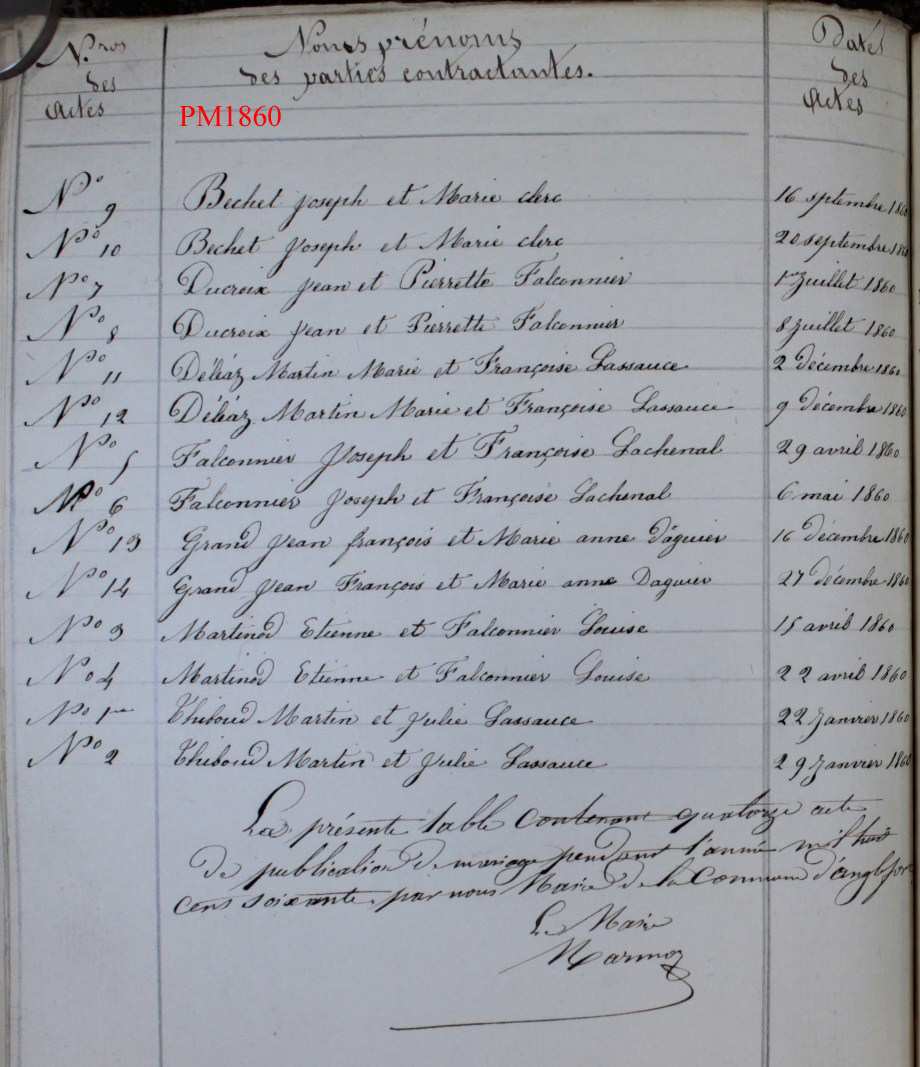 N.ros des Actes
Noms prénoms des parties contractantes.
Dates des Actes
PM1860
No 9 Bechet Joseph et Marie clerc 16 septembre 1860
No 10 Bechet Joseph et Marie clerc 20 septembre 1860
No 7 Ducroix Jean et Pierrette Falconnier 1er Juillet 1860
No 8 Ducroix Jean et Pierrette Falconnier 8 Juillet 1860
No 11 Déléaz Martin Marie et Françoise Lassauce 2 décembre 1860
No 12 Déléaz Martin Marie et Françoise Lassauce 9 décembre 1860
No 5 Falconnier Joseph et Françoise Lachenal 29 avril 1860
No 6 Falconnier Joseph et Françoise Lachenal 6 mai 1860
No 13 Grand Jean françois et Marie anne Daguier 16 décembre 1860
No 14 Grand Jean François et Marie anne Daguier 27 décembre 1860
No 3 Martinod Etienne et Falconnier Louise 15 avril 1860
No 4 Martinod Etienne et Falconnier Louise 22 avril 1860
No 1er Thiboud Martin et Julie Lassauce 22 Janvier 1860
No 2 Thiboud Martin et Julie Lassauce 29 Janvier 1860
La présente table contenant quatorze acte
de publication de mariage pendant l'année mil huit
cens soixante par nous Maire de la Commune d'anglefort
Le Maire
Marmoz